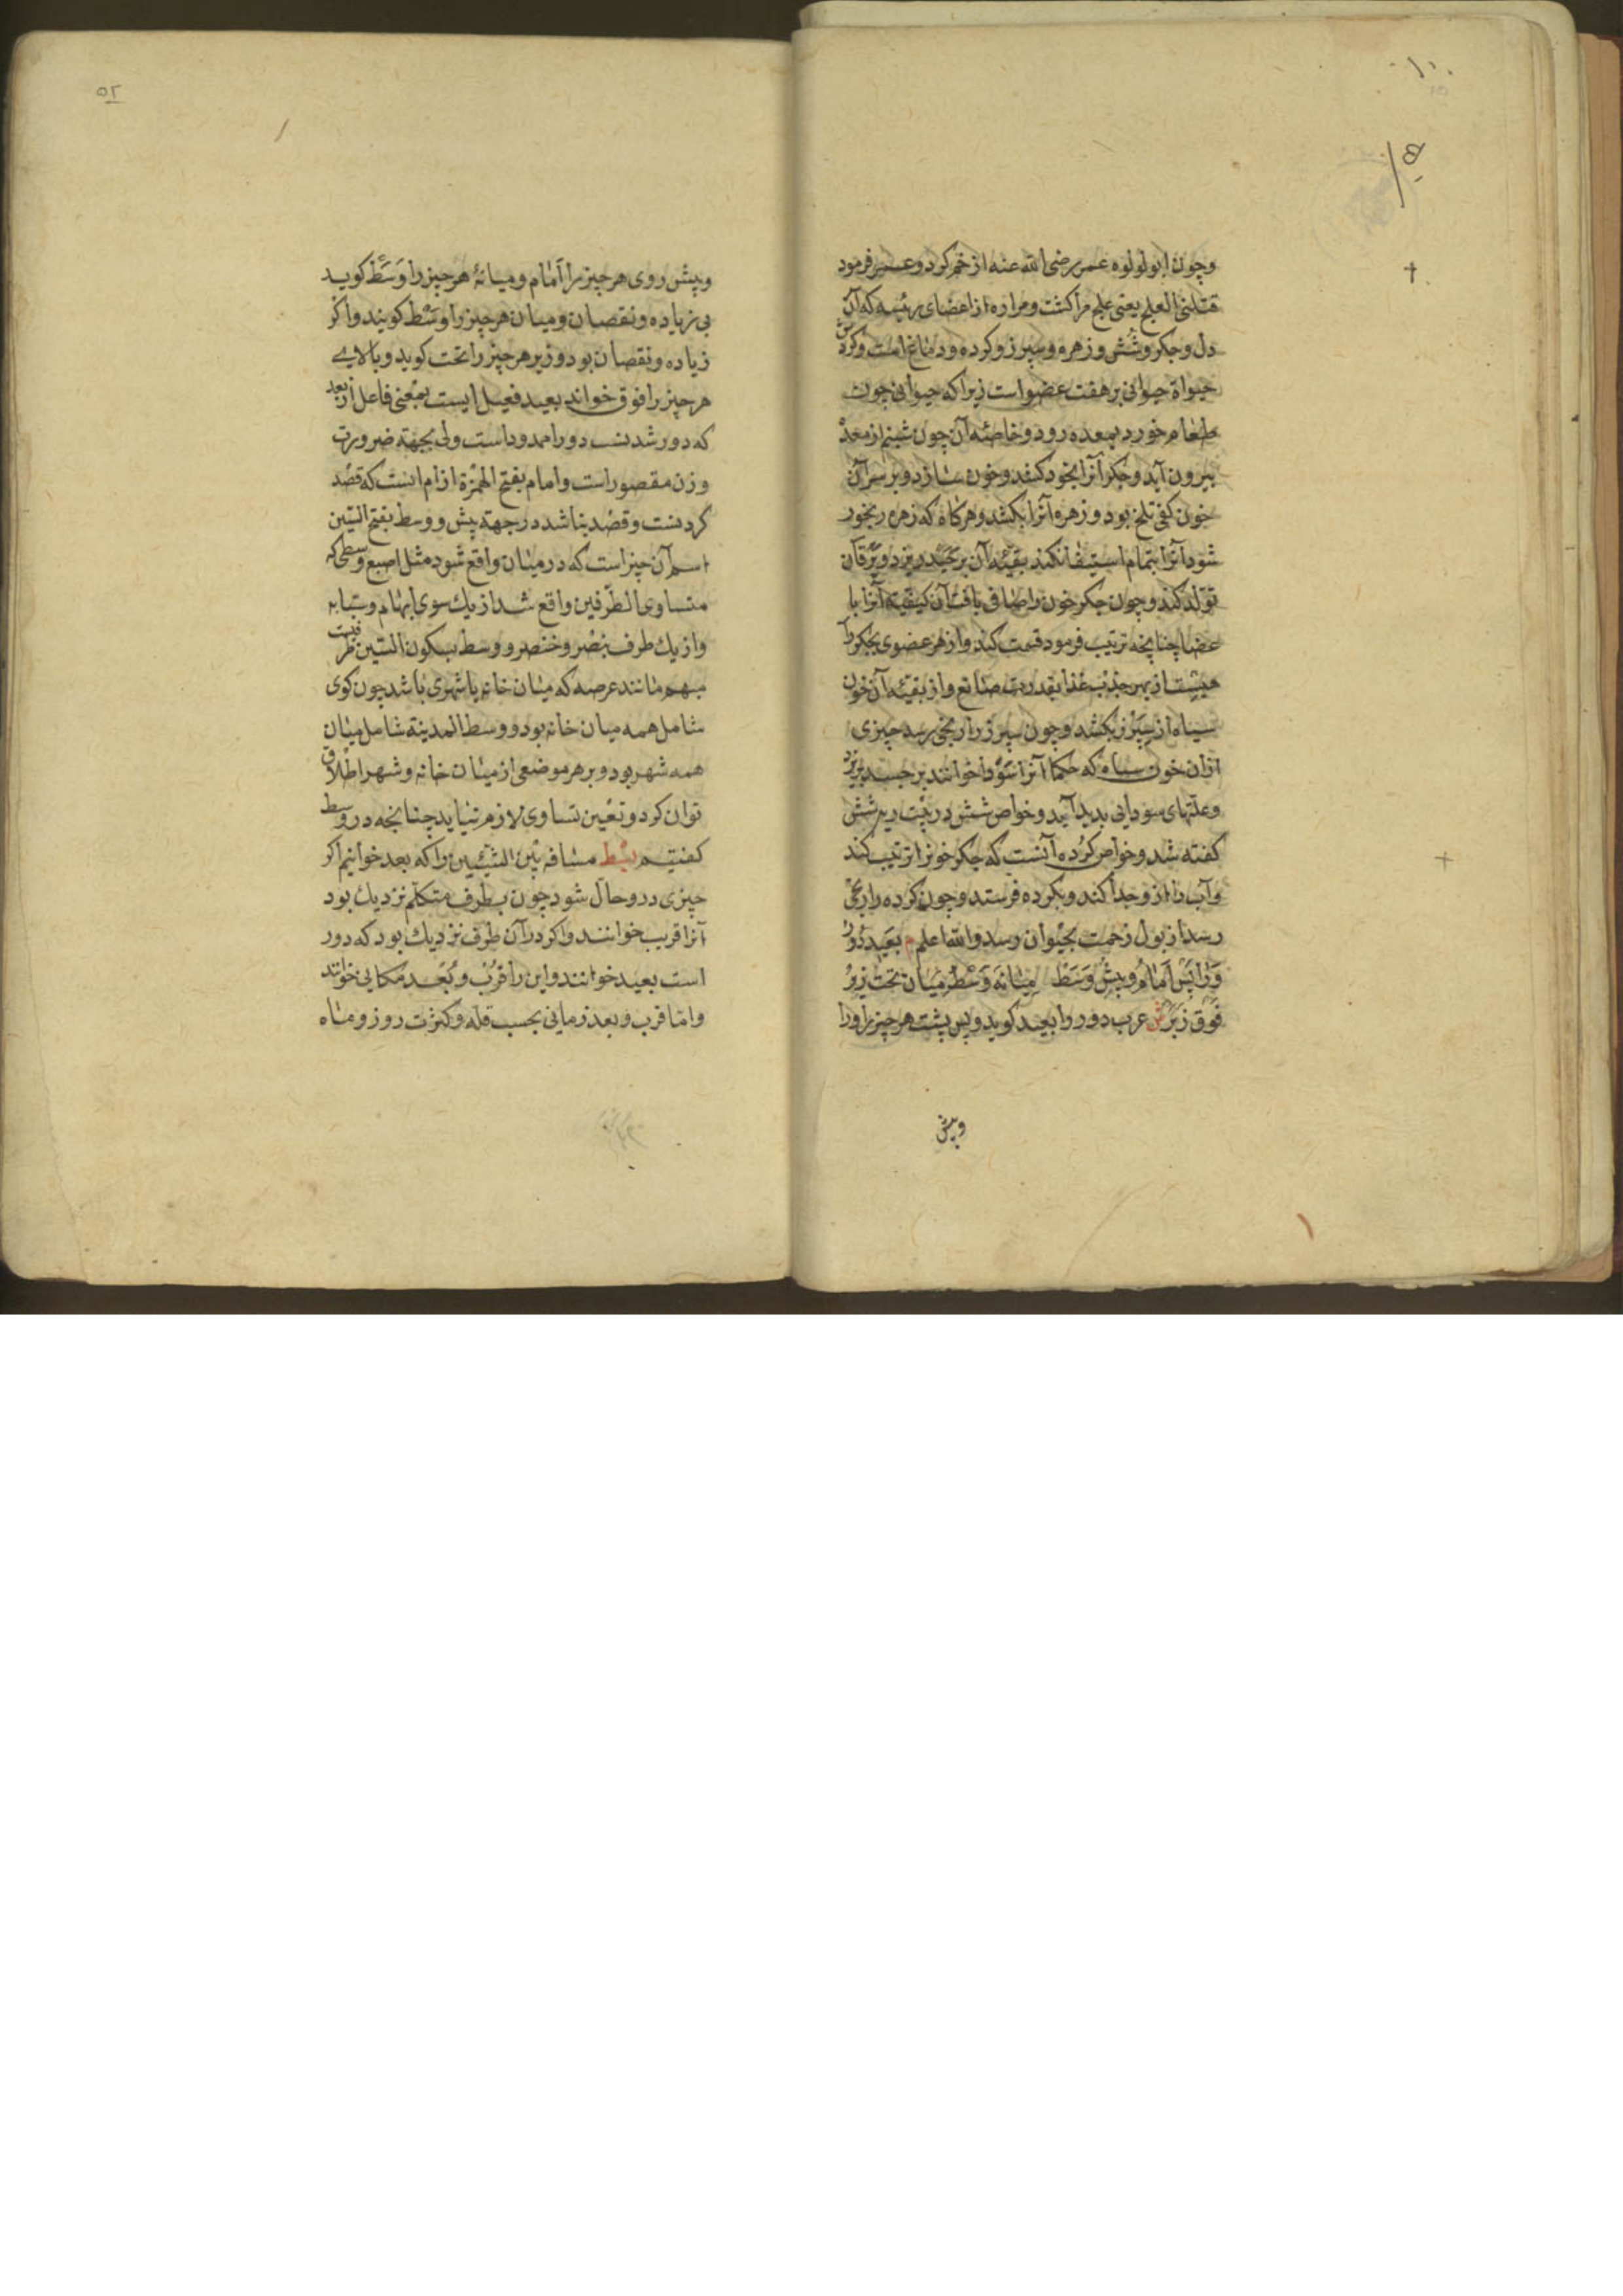 وچون ابولولوه عمر رضی الله عنه از خم کرد و عمر فرمود
قتلنی العلج یعنی علج مرا کشت و مراره از اعضای رئیسه که آن
دل و جکر و شش و زهره و سپرز و کرده و دماغ است و کردش
حیواة حیوانی بر هفت عضو است زیرا که حیوانی چون
طعام خورد بمعده رود و خاصهٔ آن چون شبنم از معده
بیرون آید و جکر آنرا بخود کشد و خون سازد و بر سر آن
خون کفی تلخ بود و زهره آنرا بکشد و هرکاه که زهره رنجور
شود آنرا بتمام استیفا نکند بقیّهٔ آن بر جسد ریزد و یرقان
تولد کند و چون جکر خون را صافی یافت آن کیفیة آنرا با
عضا چنانچه ترتیب فرمود قسمت کند و از هر عضوی بجکر راه
هیئت از بهر جذب غذا بقدرت صانع و از بقیّه آن خون
سیاه از سپرز بکشد و چون سپرز را رنجی رسد چیزی
ازان خون سیاه که حکما آنرا سودا خوانند بر جسد ریزد
وعلّتهای سودایی بدید آید و خواص شش در بیت ریه شش
کفته شد و خواص کرده آنست که جکر خونرا ترتیب کند
وآب را از وجدا کند و بکرده فرستد و چون کرده را رنجی
رسد از بول زحمت بحیوان رسد والله اعلم م بعید دور
وَرا پس اَمام و پیش وَسَط میانه وَسْط میان تحت زیر
فوق زبر ش عرب دور را بعید کوید و پس پشت هر چیز را ورا
وپیش
۵۲
وپیش روی هر چیز را اَمام و میانهٔ هر چیز را وَسَط کوید
بی زیاده و نقصان و میان هر چیز را وسْط کویند و اکر
زیاده و نقصان بود و زیر هر چیز را تحت کوید و بالای
هر چیز را فوق خواند بعید فعیل ایست بمعنی فاعل از بعد
که دور شدنست دورا ممدوداست ولی بجهة ضرورت
وزن مقصور است و امام بفتح الهمزة از ام است که قصد
کردنست و قصد بناشد در جهة پیش و وسط بفتح السّین
اسم آن چیز است که در میان واقع شود مثل اصبع وسطی که
متساوی الطرفین واقع شد از یك سوی ابهام و سبابه
واز یك طرف بنصر و خنصر و وسط بسکون السّین ظرفیت
مبهم مانند عرصه که میان خانه یا شهری باشد چون کوی
شامل همه میان خانه بود و وسط المدینة شامل میان
همه شهر بود و بر هر موضعی از میان خانه و شهر اطلاق
توان کرد و تعیین تساوی لازم نیاید چنانچه در وسط
کفتیم بسط مسافه بین الشیئین را که بعد خوانیم اکر
چیزی درو حالّ شود چون بطرف متکلم نزدیك بود
آنرا قریب خوانند و اکر در آن طرف نزدیك بود که دور
است بعید خوانند و این را قرب و بُعد مکانی خوانند
وامّا قرب و بعد زمانی بحسب قله و کثرت روز و ماه